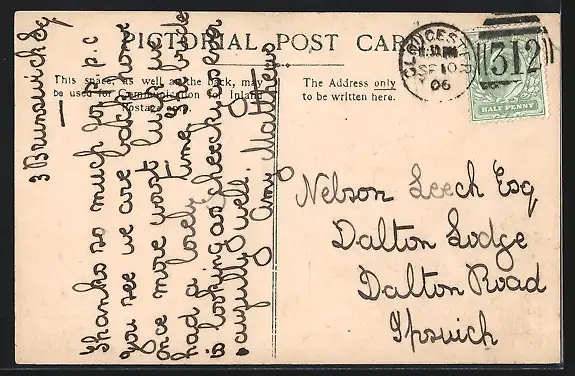 PICTORIAL POST CARD
This space, as well as the back, may
be used for Communication for Inland
Postage only.
The Address only
to be written here.
GLOUCESTER
SP 10
06
312
HALF PENNY
3 Brunswick Sq
Thanks so much for p.c
You see we are back home
once more worst luck we
had a lovely time, the bride
is looking as cheeky as ever
awfully well. Amy Matthews
Nelson Leech Esq
Dalton Lodge
Dalton Road
Ipswich